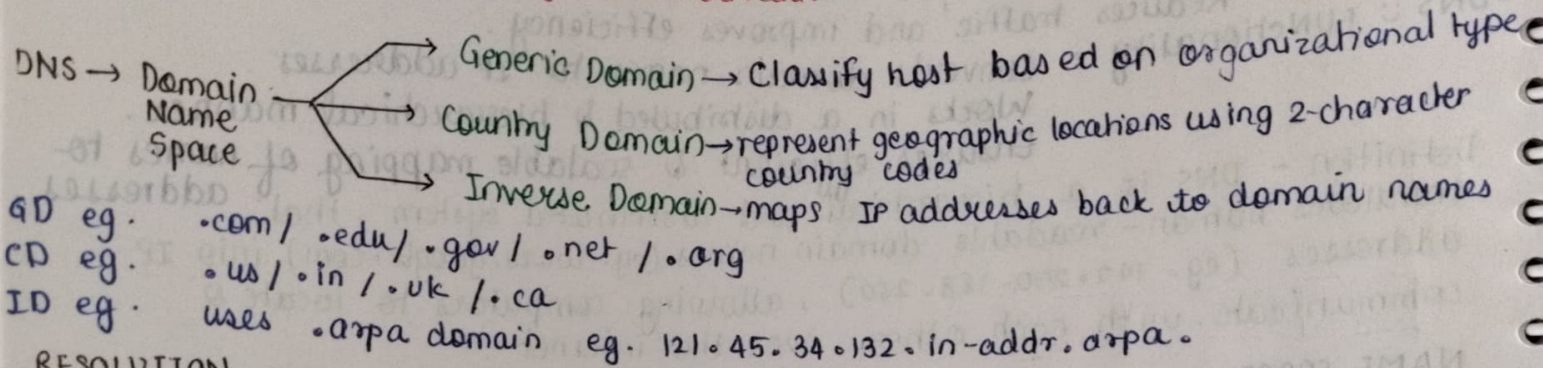 DNS → Domain Name Space
→ Generic Domain → Classify host based on organizational type
→ Country Domain → represent geographic locations using 2-character country codes
→ Inverse Domain → maps IP addresses back to domain names
GD eg. .com / .edu / .gov / .net / .org
CD eg. .us / .in / .uk / .ca
ID eg. uses .arpa domain eg. 121.45.34.132.in-addr.arpa.
RESOLUTION